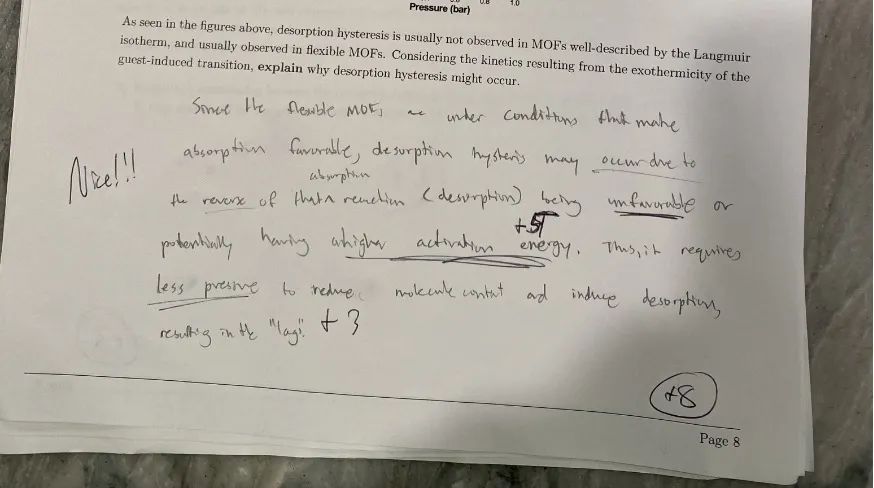 0.8 1.0
Pressure (bar)
As seen in the figures above, desorption hysteresis is usually not observed in MOFs well-described by the Langmuir
isotherm, and usually observed in flexible MOFs. Considering the kinetics resulting from the exothermicity of the
guest-induced transition, explain why desorption hysteresis might occur.
Since the flexible MOFs are under conditions that make
Nice!!! absorption favorable, desorption hysteris may occur due to
absorption
the reverse of that reaction (desorption) being unfavorable or
+5
potentially having a higher activation energy. Thus, it requires
less pressure to reduce molecule contact and induce desorption,
resulting in the "lag". +3
+8
Page 8